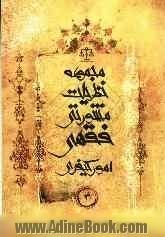 مجموعه
نظریات
مشورتی
فقهی
امور کیفری
www.AdineBook.com